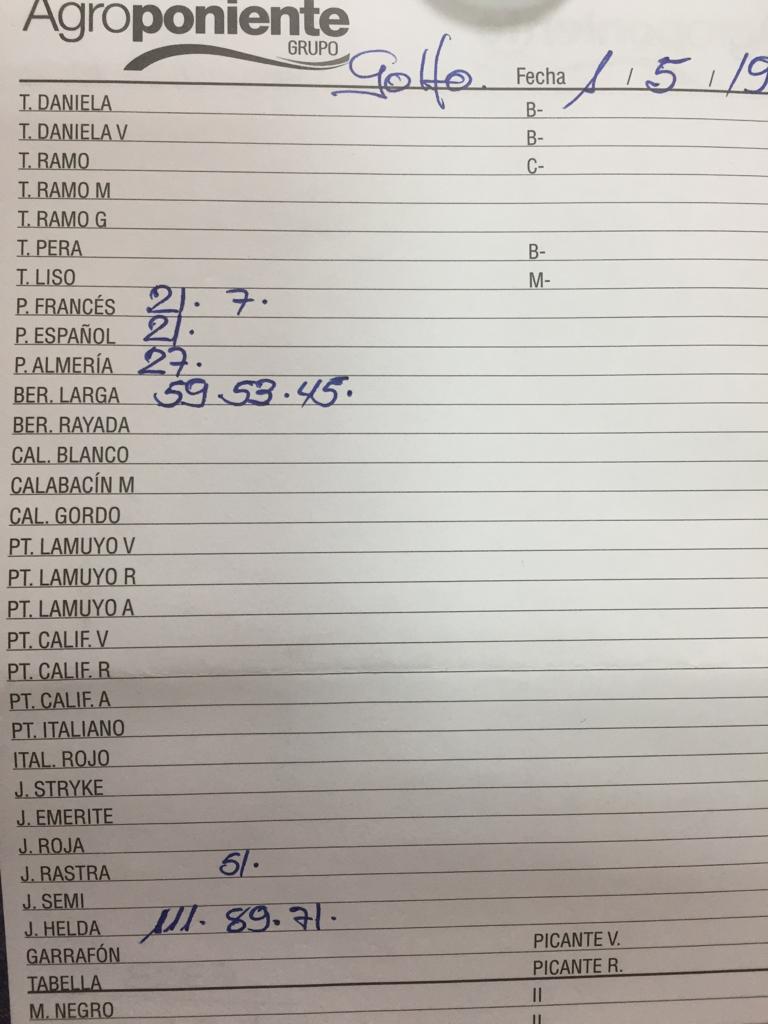 Agroponiente
GRUPO
Golfo. Fecha 1 / 5 / 19
T. DANIELA B-
T. DANIELA V B-
T. RAMO C-
T. RAMO M
T. RAMO G
T. PERA B-
T. LISO M-
P. FRANCÉS 21. 7.
P. ESPAÑOL 21.
P. ALMERÍA 27.
BER. LARGA 59 53. 45.
BER. RAYADA
CAL. BLANCO
CALABACÍN M
CAL. GORDO
PT. LAMUYO V
PT. LAMUYO R
PT. LAMUYO A
PT. CALIF. V
PT. CALIF. R
PT. CALIF. A
PT. ITALIANO
ITAL. ROJO
J. STRYKE
J. EMERITE
J. ROJA
J. RASTRA 51.
J. SEMI
J. HELDA 111. 89. 71.
GARRAFÓN PICANTE V.
TABELLA PICANTE R.
M. NEGRO II